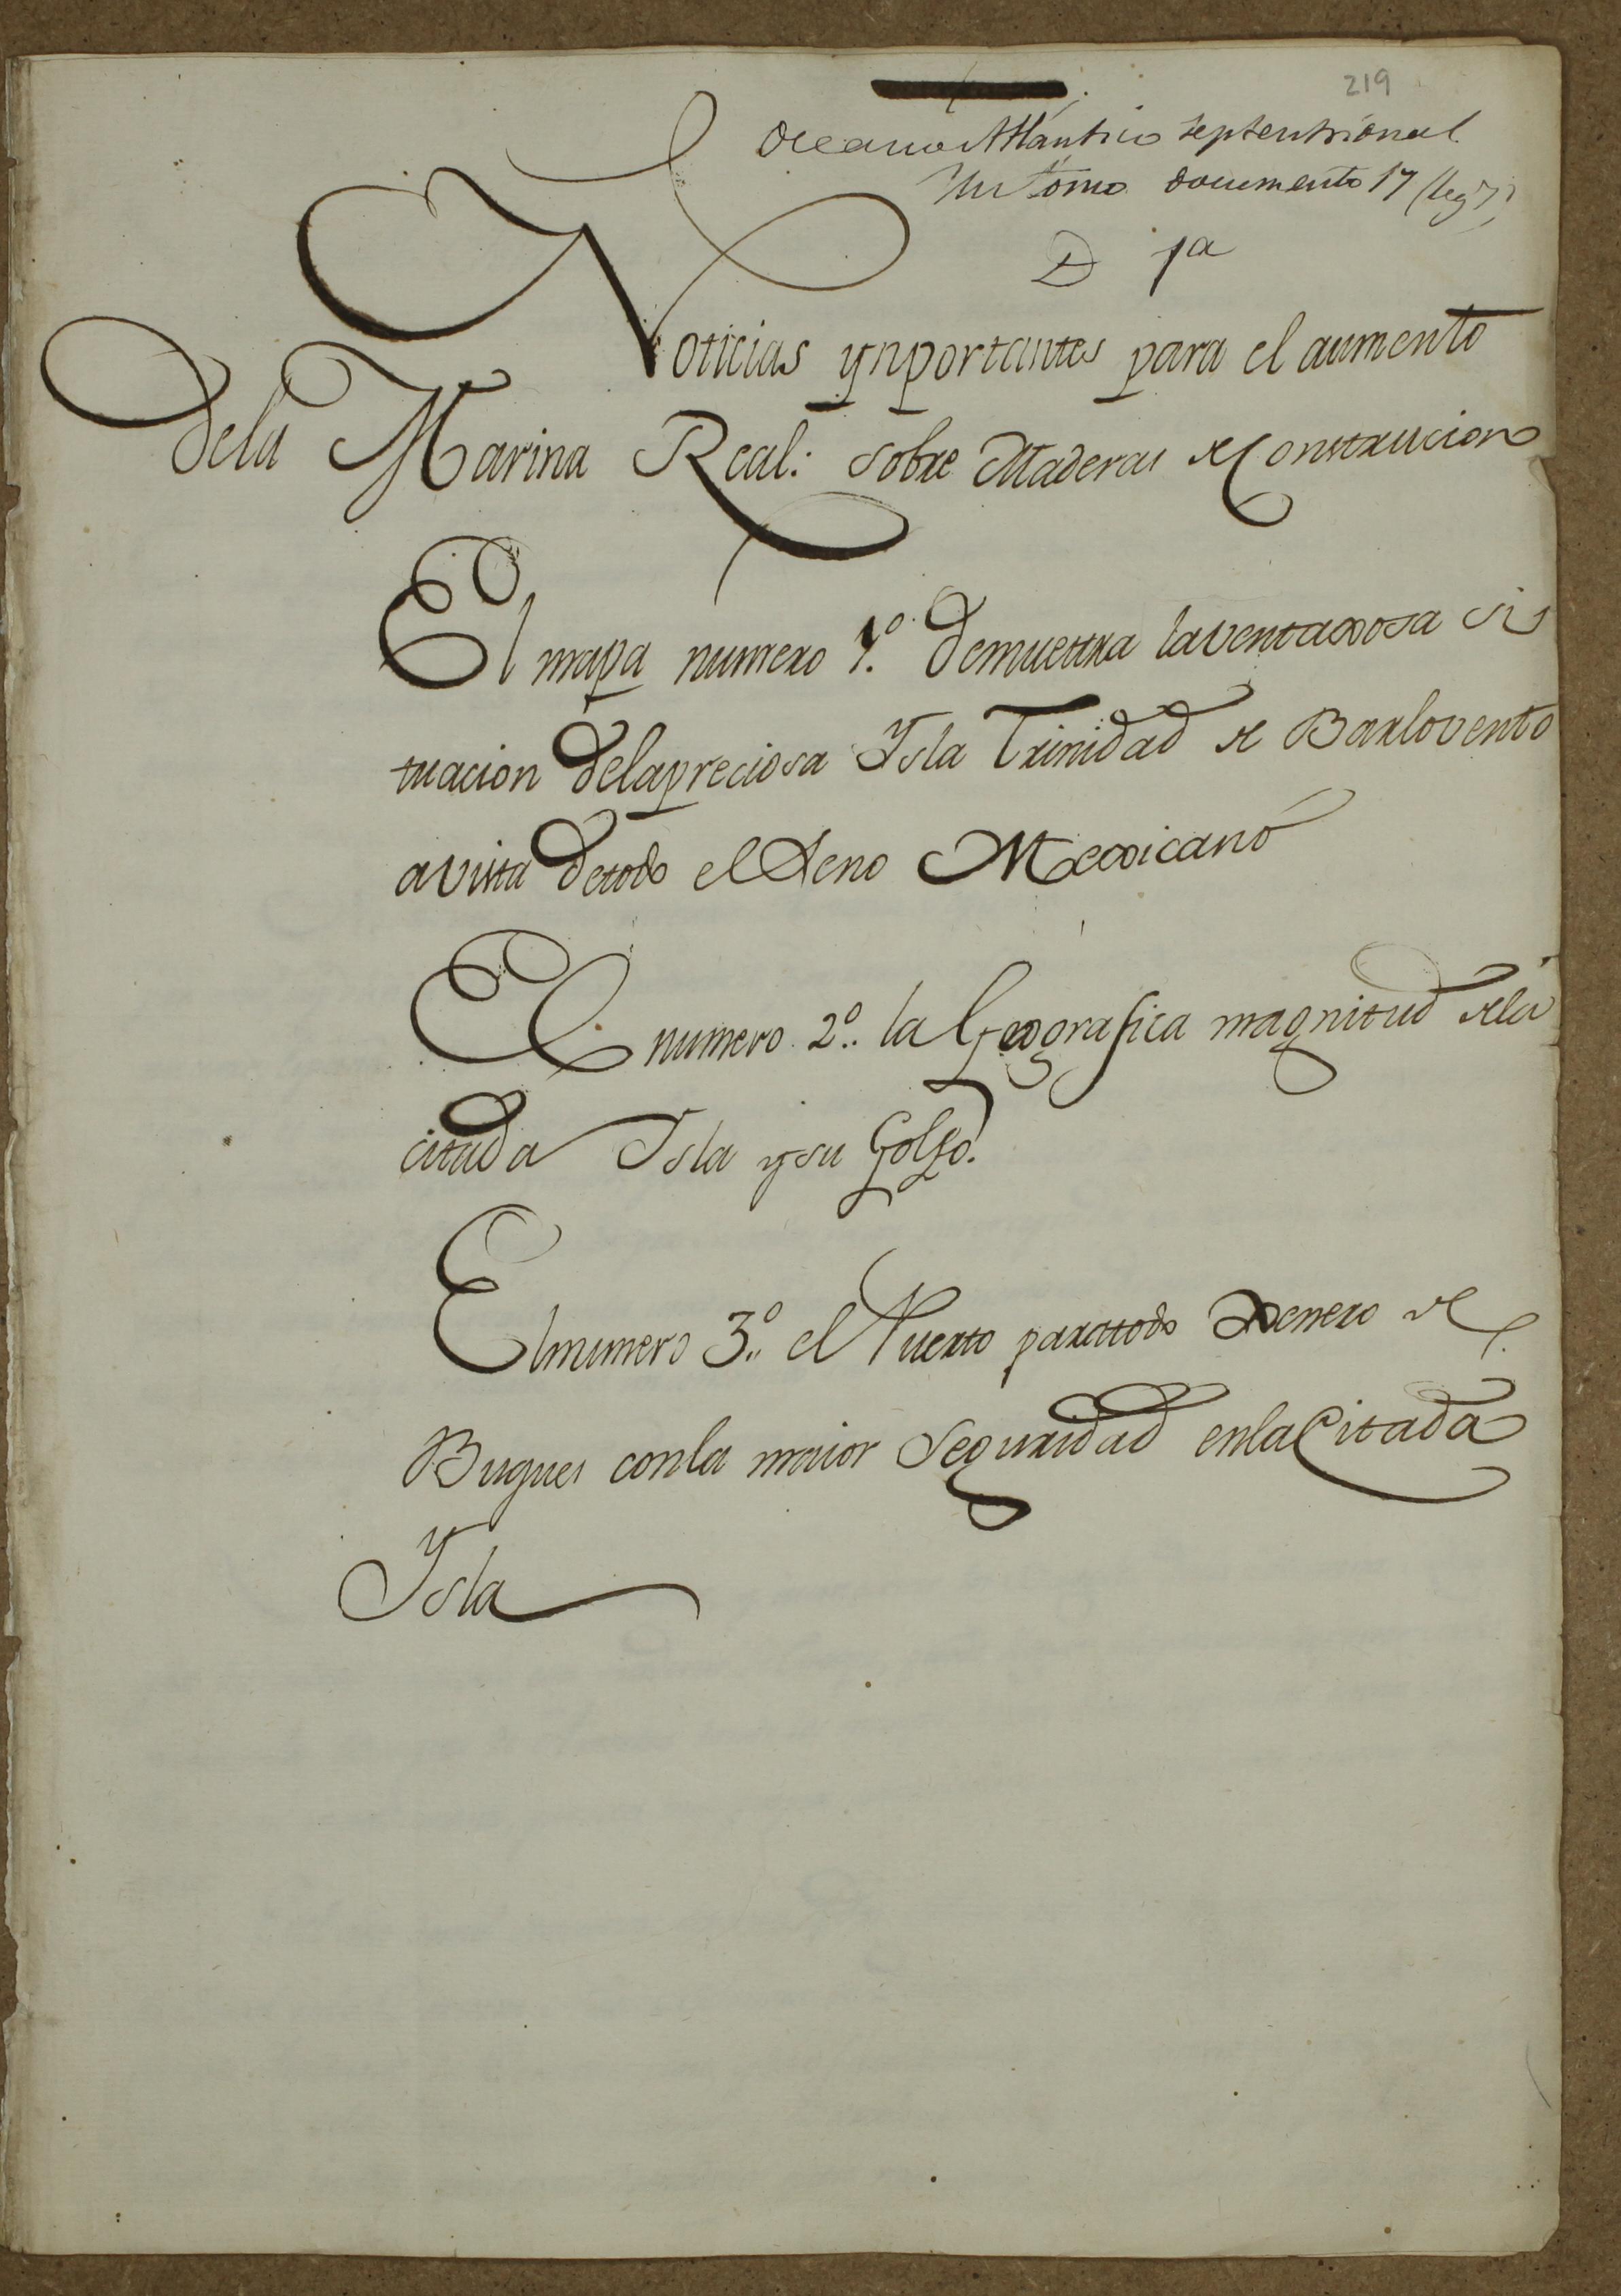 219
Oceano Atlántico Septentrional.
Un tomo documento 17 (leg 7)
D 1a
Noticias ynportantes para el aumento
dela Marina Real: sobre Maderas de Construcion
El mapa numero 1.º demuestra laventaxosa si
tuacion delapreciosa Ysla Trinidad de Barlovento
avista detodo el Seno Mexicano
El numero 2.º la Geografica magnitud dela
citada Ysla ysu Golfo.
Elnumero 3.º el Puerto paratodo Xenero de
Buques conla maior Seguridad enla Citada
Ysla